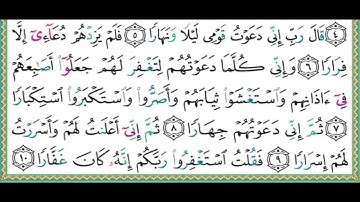 ﴿٤﴾ قَالَ رَبِّ إِنِّي دَعَوْتُ قَوْمِي لَيْلًا وَنَهَارًا ﴿٥﴾ فَلَمْ يَزِدْهُمْ دُعَآءِىٓ إِلَّا
فِرَارًا ﴿٦﴾ وَإِنِّي كُلَّمَا دَعَوْتُهُمْ لِتَغْفِرَ لَهُمْ جَعَلُوٓا۟ أَصَٰبِعَهُمْ
فِىٓ ءَاذَانِهِمْ وَٱسْتَغْشَوْا۟ ثِيَابَهُمْ وَأَصَرُّوا۟ وَٱسْتَكْبَرُوا۟ ٱسْتِكْبَارًا
﴿٧﴾ ثُمَّ إِنِّي دَعَوْتُهُمْ جِهَارًا ﴿٨﴾ ثُمَّ إِنِّىٓ أَعْلَنتُ لَهُمْ وَأَسْرَرْتُ
لَهُمْ إِسْرَارًا ﴿٩﴾ فَقُلْتُ ٱسْتَغْفِرُوا۟ رَبَّكُمْ إِنَّهُۥ كَانَ غَفَّارًا ﴿١٠﴾